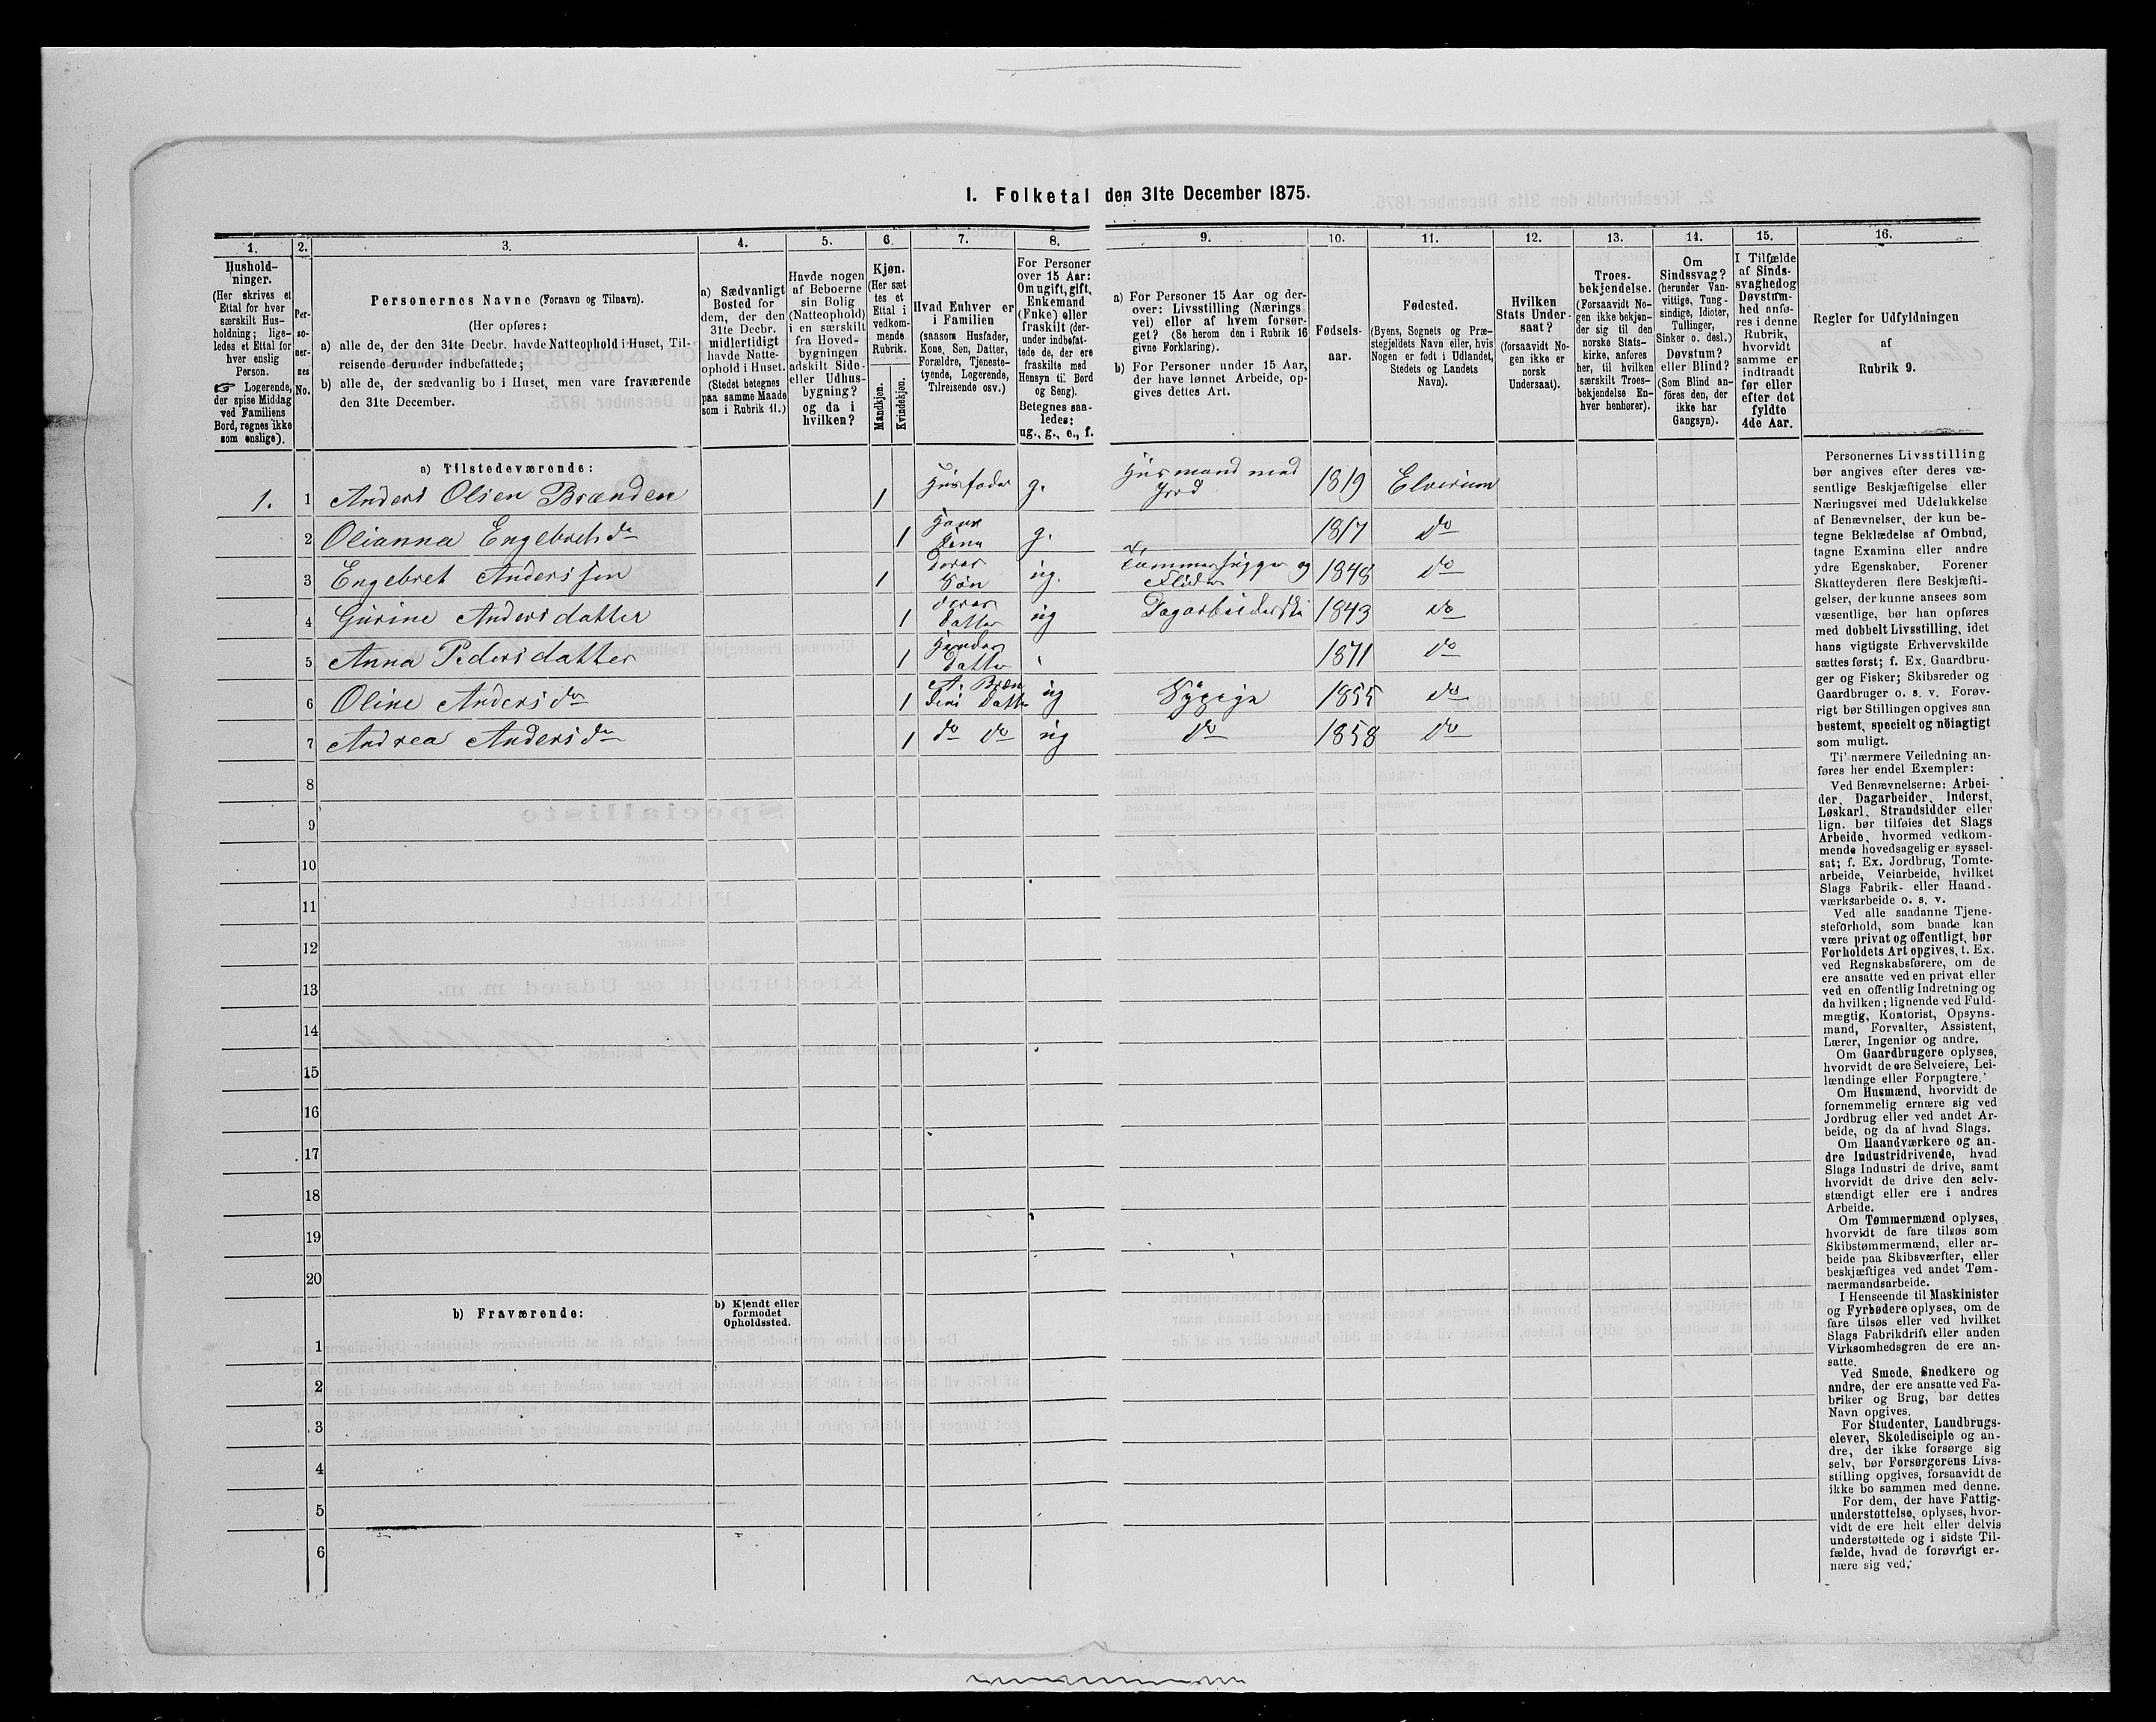 I. Folketal den 31te December 1875.
1. 2. 3. 4. 5. 6. 7. 8. 9. 10. 11. 12. 13. 14. 15. 16.
Hushold-
ninger.
(Her skrives et
Ettal for hver
særskilt Hus-
holdning; lige-
ledes et Ettal for
hver enslig
Person.
☞ Logerende,
der spise Middag
ved Familiens
Bord, regnes ikke
som enslige).
Per-
so-
ner-
nes
No.
Personernes Navne (Fornavn og Tilnavn).
(Her opføres:
a) alle de, der den 31te Decbr. havde Natteophold i Huset, Til-
reisende derunder indbefattede;
b) alle de, der sædvanlig bo i Huset, men vare fraværende
den 31te December.
a) Sædvanligt
Bosted for
dem, der den
31te Decbr.
midlertidigt
havde Natte-
ophold i Huset.
(Stedet betegnes
paa samme Maade
som i Rubrik 11.)
Havde nogen
af Beboerne
sin Bolig
(Natteophold)
i en særskilt
fra Hoved-
bygningen
adskilt Side-
eller Udhus-
bygning?
og da i
hvilken?
Kjøn.
(Her sæt-
tes et
Ettal i
vedkom-
mende
Rubrik.
Mandkjøn.
Kvindekjøn.
Hvad Enhver er
i Familien
(saasom Husfader,
Kone, Søn, Datter,
Forældre, Tjeneste-
tyende, Logerende,
Tilreisende osv.)
For Personer
over 15 Aar:
Om ugift, gift,
Enkemand
(Enke) eller
fraskilt (der-
under indbefat-
tede de, der ere
fraskilte med
Hensyn til Bord
og Seng).
Betegnes saa-
ledes:
ug., g., e., f.
a) For Personer 15 Aar og der-
over: Livsstilling (Nærings-
vei) eller af hvem forsør-
get? (Se herom den i Rubrik 16
givne Forklaring).
b) For Personer under 15 Aar,
der have lønnet Arbeide, op-
gives dettes Art.
Fødsels-
aar.
Fødested.
(Byens, Sognets og Præ-
stegjeldets Navn eller, hvis
Nogen er født i Udlandet,
Stedets og Landets
Navn).
Hvilken
Stats Under-
saat?
(forsaavidt No-
gen ikke er
norsk
Undersaat).
Troes-
bekjendelse.
(Forsaavidt No-
gen ikke bekjen-
der sig til den
norske Stats-
kirke, anføres
her, til hvilken
særskilt Troes-
bekjendelse En-
hver henhører).
Om
Sindssvag?
(herunder Van-
vittige, Tung-
sindige, Idioter,
Tullinger,
Sinker o. desl.)
Døvstum?
eller Blind?
(Som Blind an-
føres den, der
ikke har
Gangsyn).
I Tilfælde
af Sinds-
svaghed og
Døvstum-
hed anfø-
res i denne
Rubrik,
hvorvidt
samme er
indtraadt
før eller
efter det
fyldte
4de Aar.
Regler for Udfyldningen
af
Rubrik 9.
a) Tilstedeværende:
1. 1 Anders Olsen Brænden 1 Husfader g. Husmand med Jord 1819 Elverum
2 Olianna Engebretsdr 1 Hans Kone g. 1817 do
3 Engebret Anderssen 1 deres Søn ug. og 1848 do
4 Gurine Andersdatter 1 deres Datter ug 1843 do
5 Anna Pedersdatter 1 Hendes Datter 1871 do
6 Oline Andersdr 1 A. Datter ug Sypige 1855 do
7 Andrea Andersdr 1 do do ug do 1858 do
8
9
10
11
12
13
14
15
16
17
18
19
20
b) Fraværende:
b) Kjendt eller
formodet
Opholdssted.
1
2
3
4
5
6
Personernes Livsstilling
bør angives efter deres væ-
sentlige Beskjæftigelse eller
Næringsvei med Udelukkelse
af Benævnelser, der kun be-
tegne Beklædelse af Ombud,
tagne Examina eller andre
ydre Egenskaber. Forener
Skatteyderen flere Beskjæfti-
gelser, der kunne ansees som
væsentlige, bør han opføres
med dobbelt Livsstilling, idet
hans vigtigste Erhvervskilde
sættes først; f. Ex. Gaardbru-
ger og Fisker; Skibsreder og
Gaardbruger o. s. v. Forøv-
rigt bør Stillingen opgives saa
bestemt, specielt og nöiagtigt
som muligt.
Til nærmere Veiledning an-
føres her endel Exempler:
Ved Benævnelserne: Arbei-
der, Dagarbeider, Inderst,
Løskarl, Strandsidder eller
lign. bør tilføies det Slags
Arbeide, hvormed vedkom-
mende hovedsagelig er syssel-
sat; f. Ex. Jordbrug, Tomte-
arbeide, Veiarbeide, hvilket
Slags Fabrik- eller Haand-
værksarbeide o. s. v.
Ved alle saadanne Tjene-
steforhold, som baade kan
være privat og offentligt, bør
Forholdets Art opgives, t. Ex.
ved Regnskabsførere, om de
ere ansatte ved en privat eller
ved en offentlig Indretning og
da hvilken; lignende ved Fuld-
mægtig, Kontorist, Opsyns-
mand, Forvalter, Assistent,
Lærer, Ingeniør og andre.
Om Gaardbrugere oplyses,
hvorvidt de ere Selveiere, Lei-
lændinge eller Forpagtere.
Om Husmænd, hvorvidt de
fornemmelig ernære sig ved
Jordbrug eller ved andet Ar-
beide, og da af hvad Slags.
Om Haandværkere og an-
dre Industridrivende, hvad
Slags Industri de drive, samt
hvorvidt de drive den selv-
stændigt eller ere i andres
Arbeide.
Om Tømmermænd oplyses,
hvorvidt de fare tilsøs som
Skibstømmermænd, eller ar-
beide paa Skibsværfter, eller
beskjæftiges ved andet Tøm-
mermandsarbeide.
I Henseende til Maskinister
og Fyrbødere oplyses, om de
fare tilsøs eller ved hvilket
Slags Fabrikdrift eller anden
Virksomhedsgren de ere an-
satte.
Ved Smede, Snedkere og
andre, der ere ansatte ved Fa-
briker og Brug, bør dettes
Navn opgives.
For Studenter, Landbrugs-
elever, Skoledisciple og an-
dre, der ikke forsørge sig
selv, bør Forsørgerens Livs-
stilling opgives, forsaavidt de
ikke bo sammen med denne.
For dem, der have Fattig-
understøttelse, oplyses, hvor-
vidt de ere helt eller delvis
understøttede og i sidste Til-
fælde, hvad de forøvrigt er-
nære sig ved.